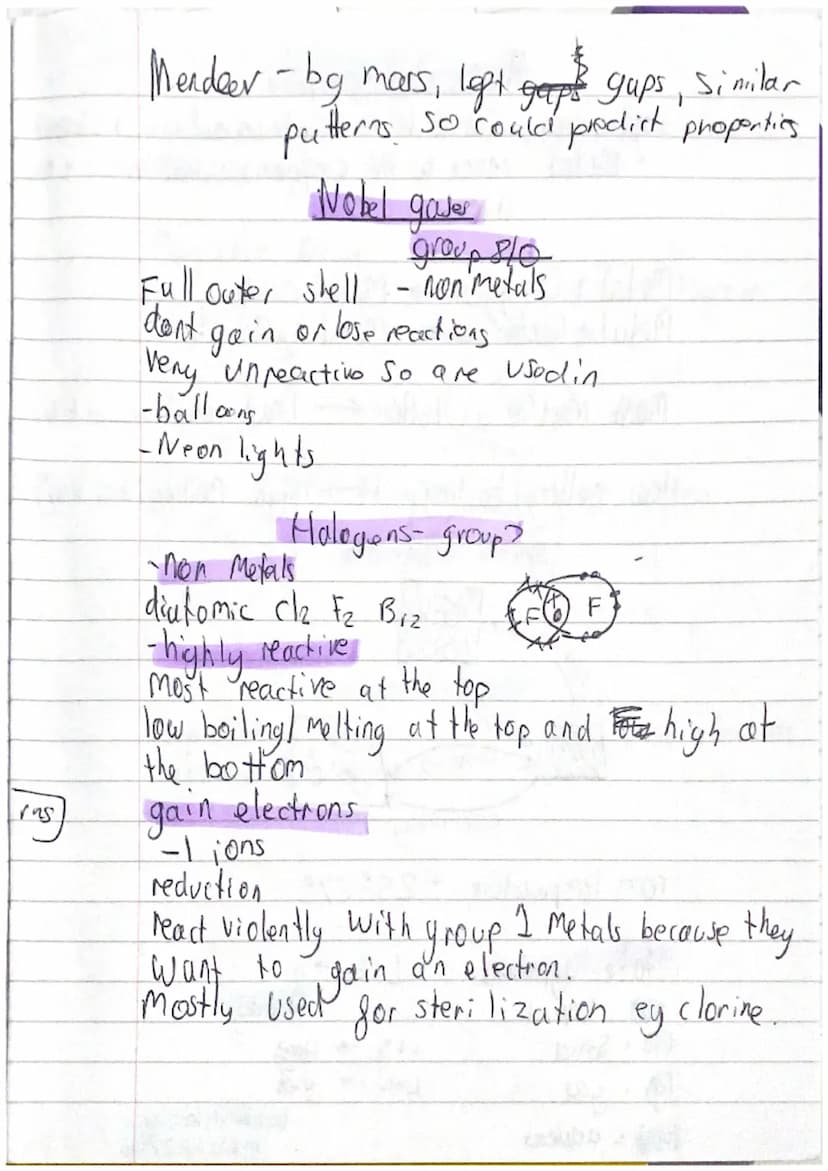 Mendeev - by mass, left gaps gaps, similar
patterns. so could predict properties
Nobel gases
group 8/0
Full outer shell - non metals
dont gain or lose reactions
very unreactive so are used in
-balloons
-Neon lights
Halogens- group 7
-non Metals
diatomic Cl2 F2 Br2
F F
-highly reactive
most reactive at the top
low boiling/melting at the top and high at
the bottom
ins
gain electrons
-1 ions
reduction
react violently with group 1 metals because they
want to gain an electron.
Mostly used for sterilization eg clorine.